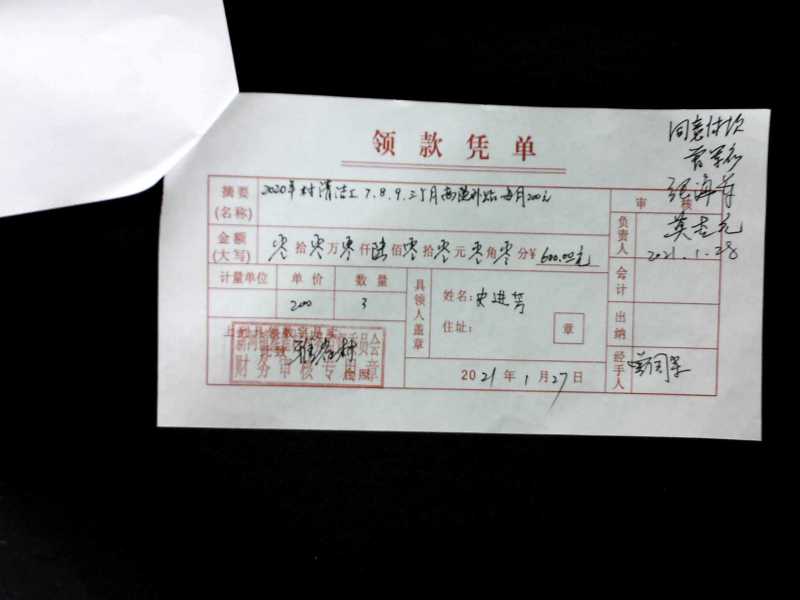 领款凭单
同意付款
摘要
(名称)
2020年村清洁工7.8.9.三个月高温补贴每月200元
审核
金额
(大写)
零拾零万零仟陆佰零拾零元零角零分¥600.00元
负责人
2021.1.28
计量单位 单价 数量
200 3
具领人盖章
姓名:史进芳
住址:
章
会计
出纳
上列款项数给是实
此致
台照
财务审核专用章
2021年1月27日
经手人